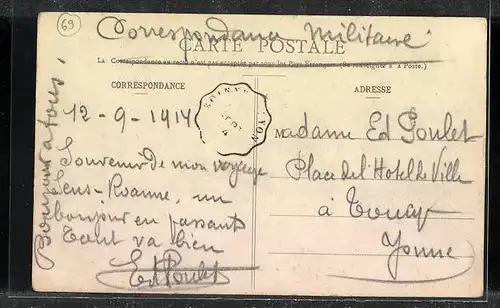 69
Correspondance Militaire
CARTE POSTALE
La Correspondance au recto n'est pas acceptée par tous les Pays Étrangers. (Se renseigner à la Poste.)
CORRESPONDANCE
ADRESSE
12-9-1914
Souvenir de mon voyage
Sens-Roanne, un
bonjour en passant
Tout va bien
Ed Poulet
Bonjour à tous.
Madame Ed Poulet
Place de l'Hotel de Ville
à Toucy
Yonne